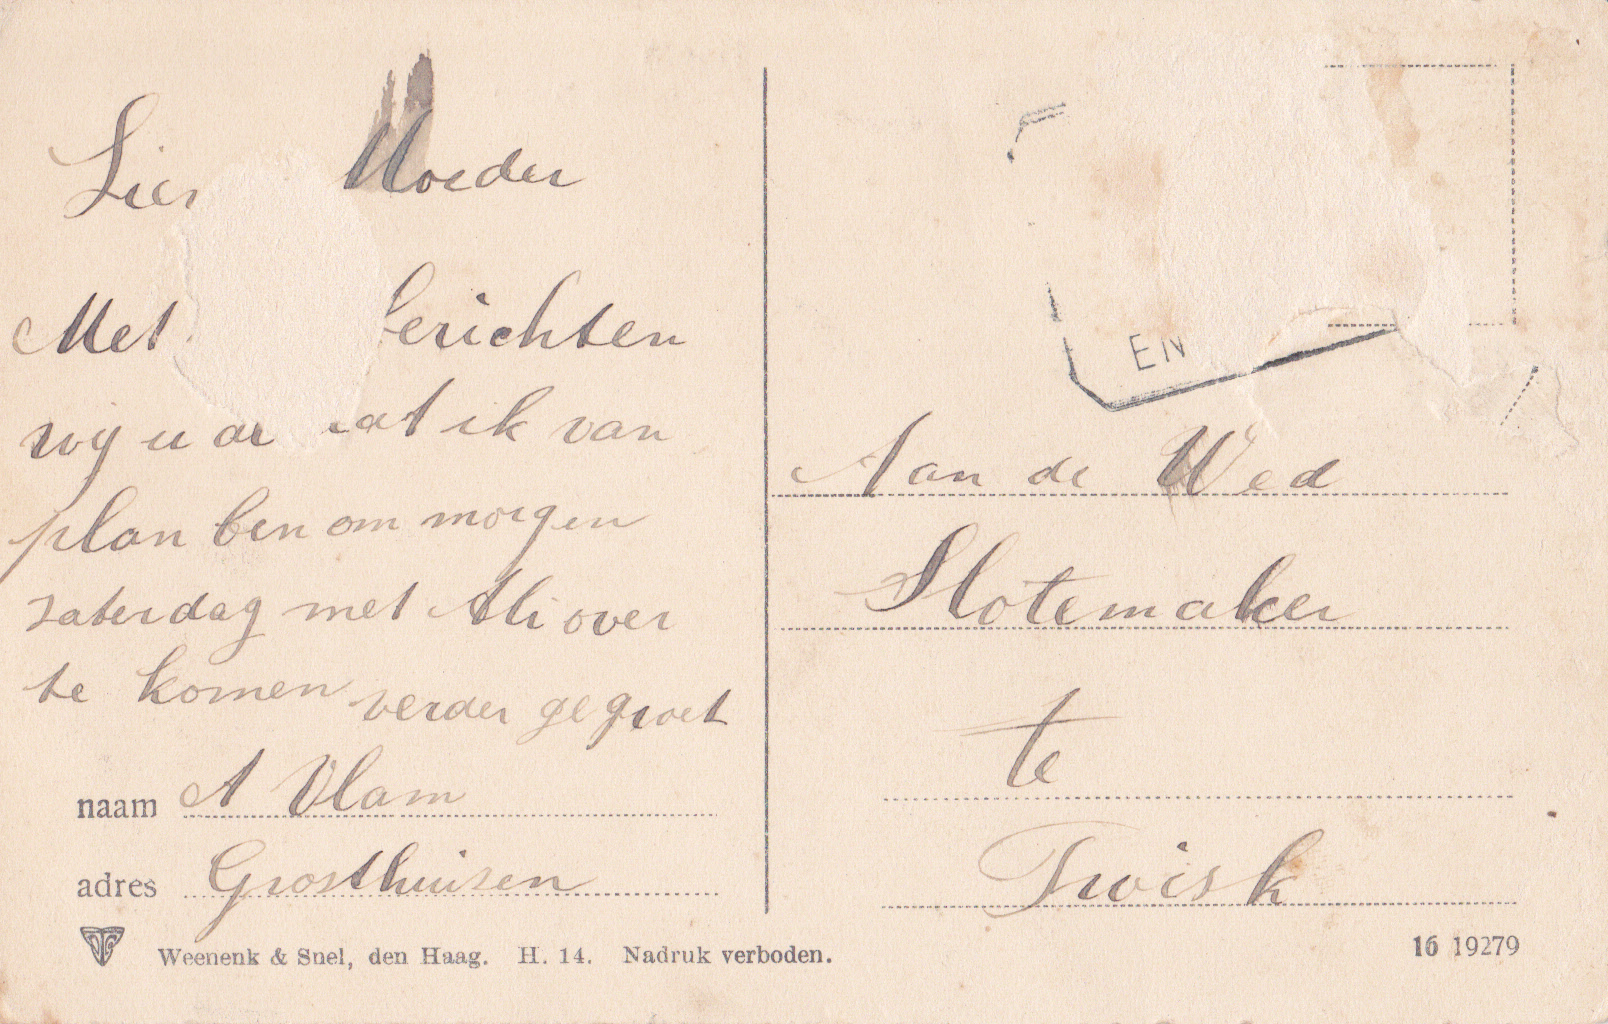 Moeder
Met
wij u dat ik van
plan ben om morgen
zaterdag met Ali over
te komen verder gegroet
naam A Vlam
adres Grosthuisen
Weenenk & Snel, den Haag. H. 14. Nadruk verboden.
EN
Aan de Wed
Slotemaker
te
Twisk
16 19279